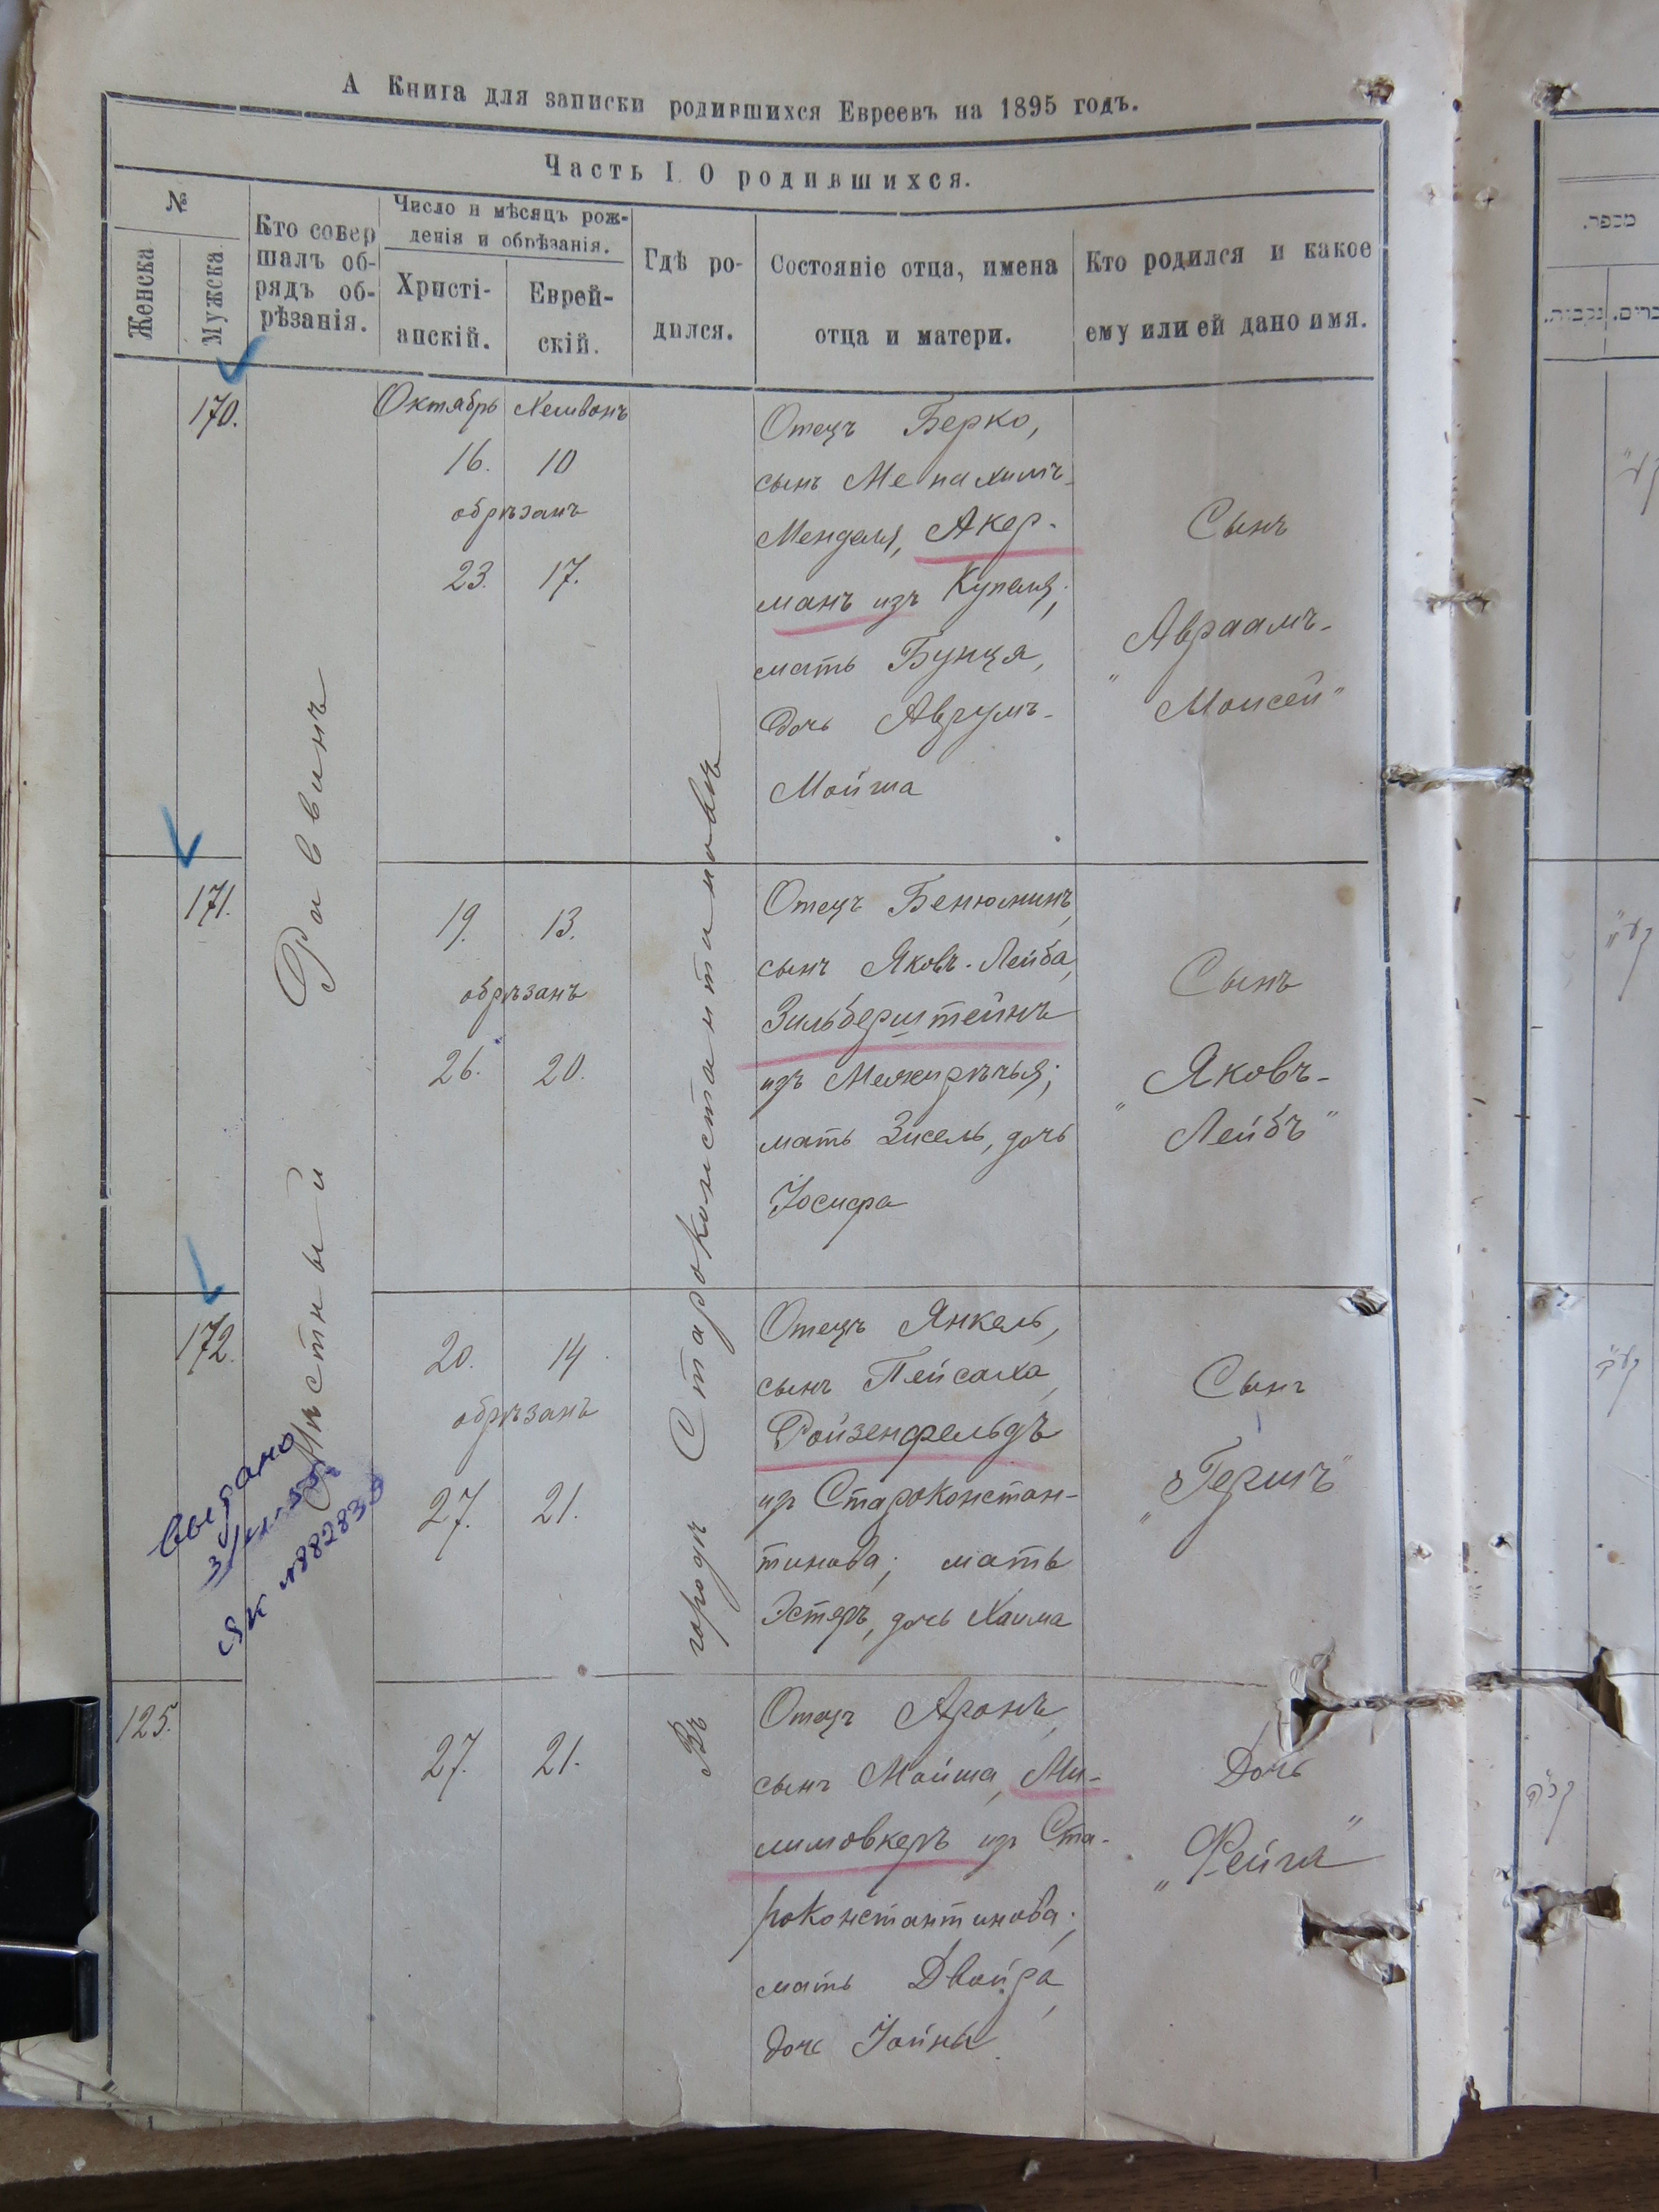 А Книга для записки родившихся Евреевъ на 1895 годъ.
Часть I. О родившихся.
№
Женска
Мужска
Кто совер
шалъ об-
рядъ об-
рѣзанія.
Число и мѣсяцъ рож-
денія и обрѣзанія.
Христі-
анскій.
Еврей-
скій.
Гдѣ ро-
дился.
Состояніе отца, имена
отца и матери.
Кто родился и какое
ему или ей дано имя.
Мѣстный Раввинъ
Въ городѣ Староконстантиновѣ
170.
Октябрь Хешванъ
16. 10
обрѣзанъ
23. 17.
Отецъ Берко,
сынъ Менахимъ-
Менделя, Акер-
манъ изъ Купеля;
мать Бунця,
дочь Аврумъ-
Мойша
Сынъ
Авраамъ-
"Моисей"
171.
19. 13.
обрѣзанъ
26. 20.
Отецъ Бенюминъ,
сынъ Яковъ-Лейба,
Зильберштейнъ
изъ Межирѣчья;
мать Зисель, дочь
Іосифа
Сынъ
"Яковъ-
Лейбъ"
172.
20. 14.
обрѣзанъ
27. 21.
Отецъ Янкель,
сынъ Пейсаха,
Ройзенфельдъ
изъ Староконстан-
тинова; мать
Эстеръ, дочь Хаима
Сынъ
"Гершъ"
Выдано
ЯК №882839
125.
27. 21.
Отецъ Аронъ,
сынъ Мойша, Ми-
лимовкеръ изъ Ста-
роконстантинова;
мать Двойра,
дочь Іойны
Дочь
"Фейга"
מספר.
נקבות.
ק"ע
קע"א
קע"ב
קכ"ה